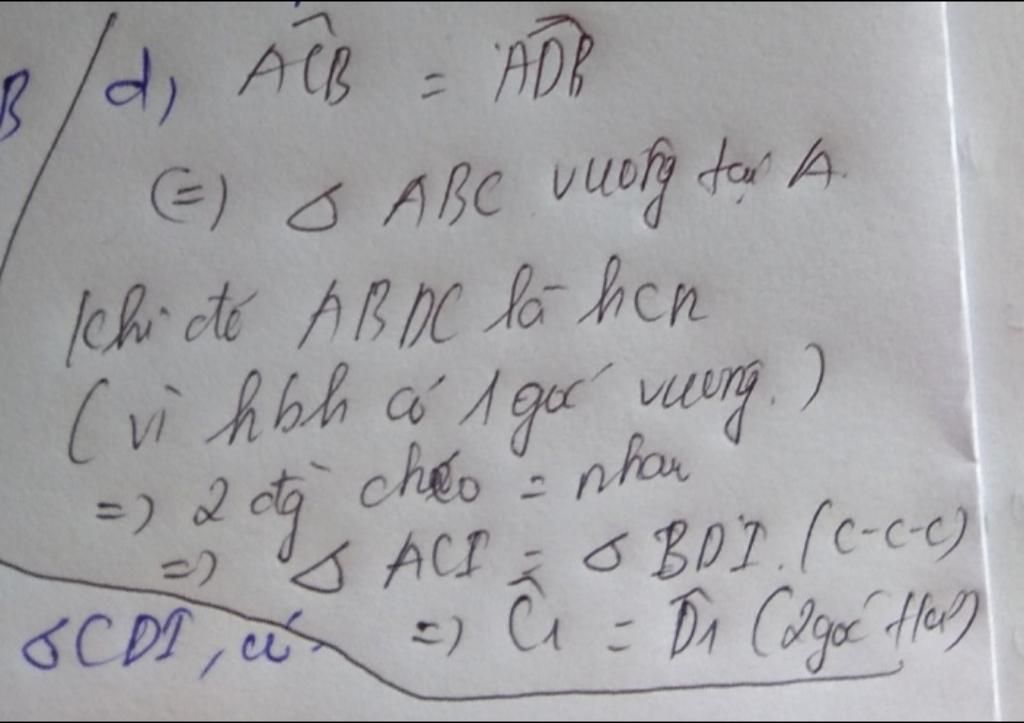 B
d, ACB = ADB
(=) Δ ABC vuông tại A.
Khi đó ABDC là hcn
(vì hbh có 1 góc vuông.)
=) 2 đg chéo = nhau
=) Δ ACI = Δ BDI. (c-c-c)
=) C1 = D1 (2 góc t/ư)
ΔCDI, có